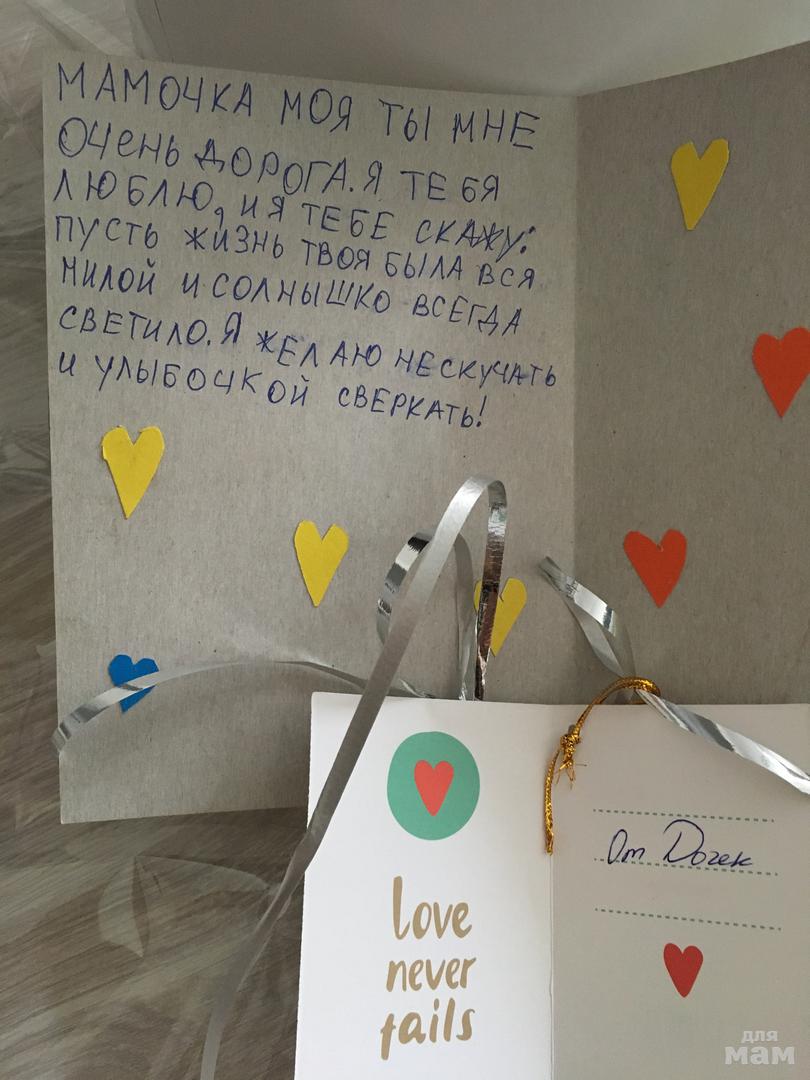 МАМОЧКА МОЯ ТЫ МНЕ
ОЧЕНЬ ДОРОГА. Я ТЕБЯ
ЛЮБЛЮ, И Я ТЕБЕ СКАЖУ:
ПУСТЬ ЖИЗНЬ ТВОЯ БЫЛА ВСЯ
МИЛОЙ И СОЛНЫШКО ВСЕГДА
СВЕТИЛО. Я ЖЕЛАЮ НЕСКУЧАТЬ
И УЛЫБОЧКОЙ СВЕРКАТЬ!
love
never
fails
От Дочек
для
мам